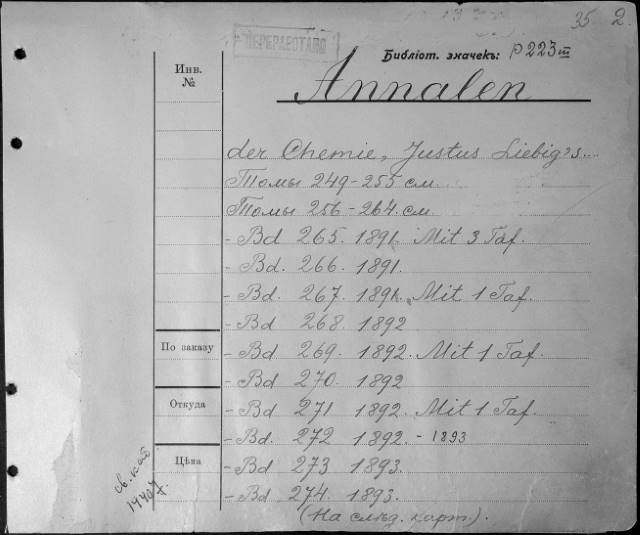 35 2
ПЕРЕРАБОТАНО
Библіот. значекъ: P 223 III
Инв.
№
Annalen
der Chemie, Justus Liebig's...
Томы 249-255 см.
Томы 256-264 см.
- Bd 265. 1891. Mit 3 Taf.
- Bd. 266. 1891.
- Bd. 267. 1891. Mit 1 Taf.
- Bd 268. 1892
По заказу
- Bd 269. 1892. Mit 1 Taf.
- Bd 270. 1892
Откуда
- Bd 271 1892. Mit 1 Taf.
- Bd. 272 1892. - 1893
Цѣна
- Bd 273 1893.
- Bd 274. 1893.
(На слѣд. карт.).
св. кат